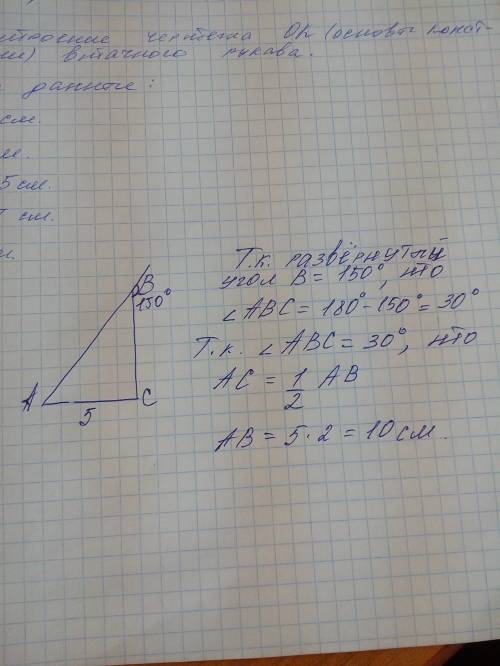 чертежа ОК (основы конст-
втачного рукава.
данные:
см.
5 см.
см.
B
150°
A
C
5
Т.к. развёрнутый
угол B = 150°, то
∠ABC = 180° - 150° = 30°
Т.к. ∠ABC = 30°, то
AC = 1/2 AB
AB = 5 · 2 = 10 см.